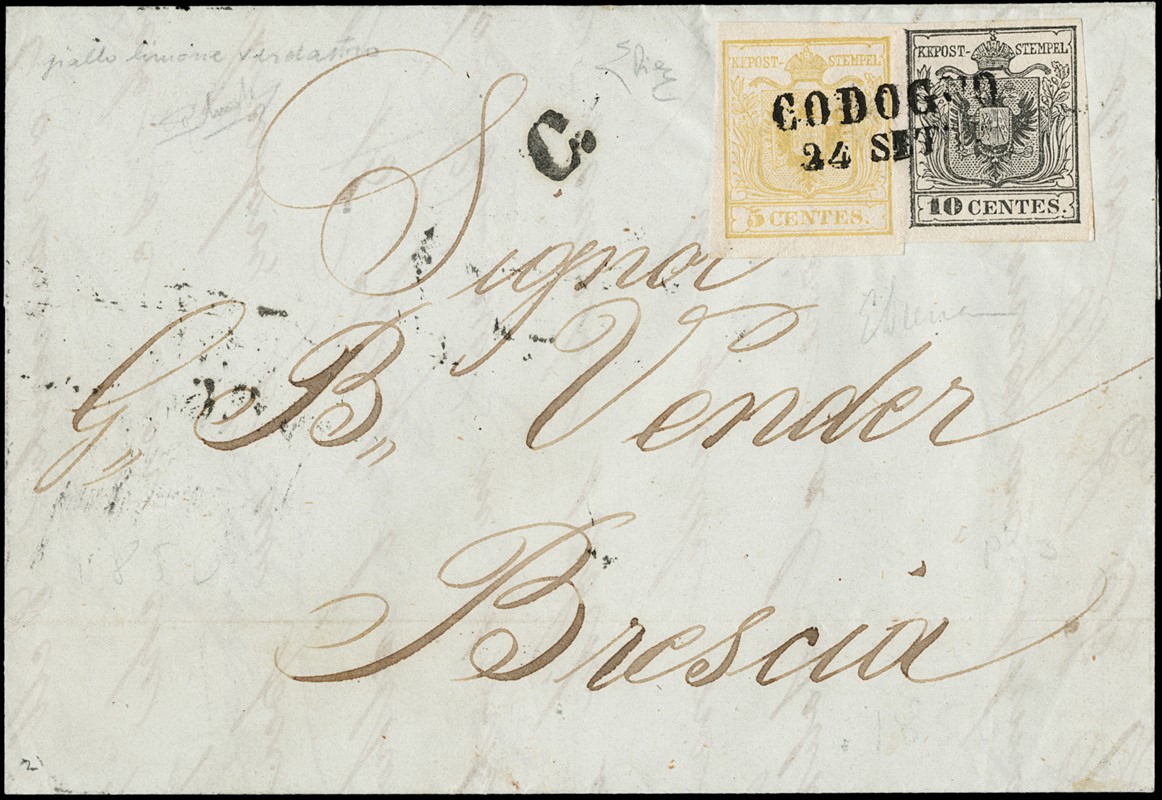 giallo limone verdastro
KKPOST-STEMPEL
KKPOST-STEMPEL
CODOGNO
24 SET.
C.
5 CENTES.
10 CENTES.
Signor
G„ B„ Vender
Brescia